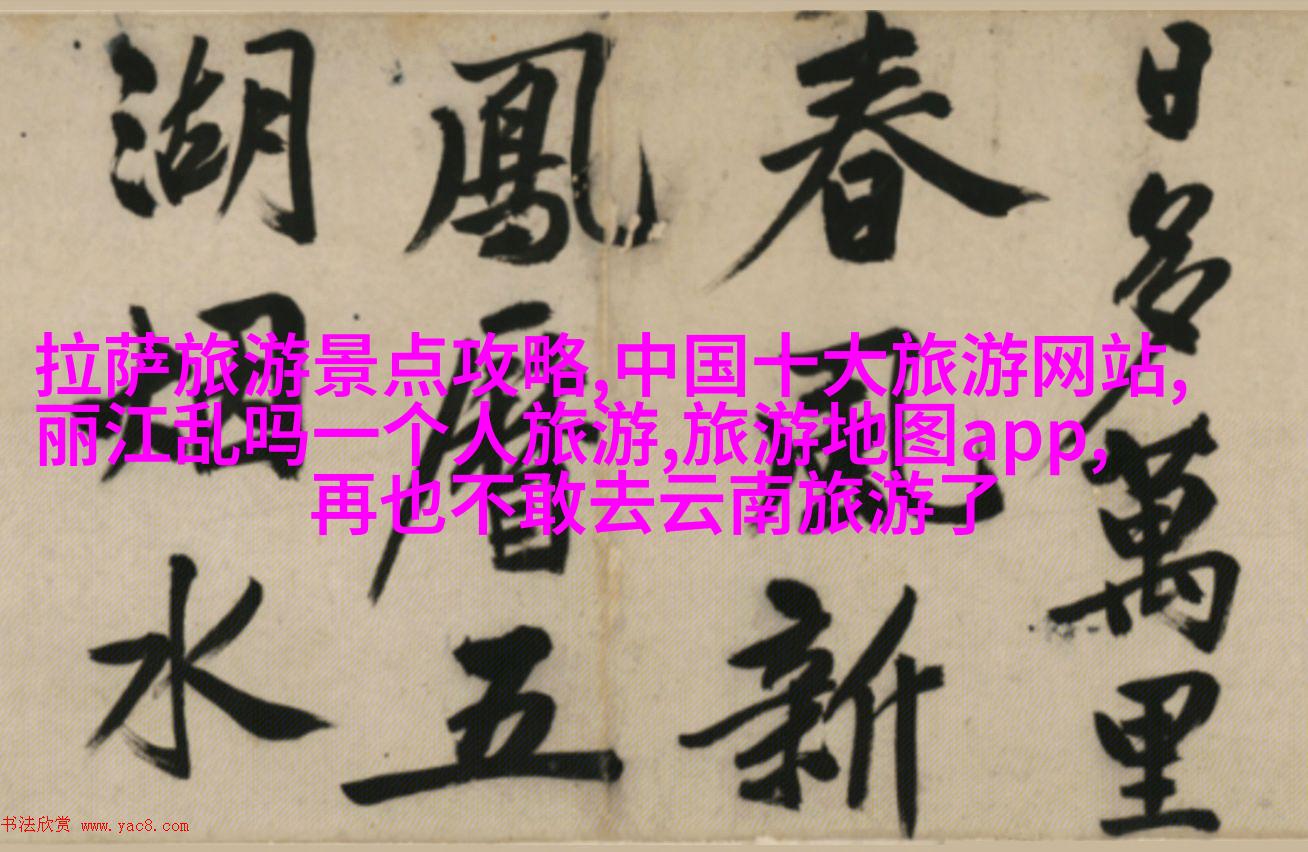 日名萬里
春風新
鳳五
湖水
拉萨旅游景点攻略,中国十大旅游网站,
丽江乱吗一个人旅游,旅游地图app,
再也不敢去云南旅游了
书法欣赏 www.yac8.com